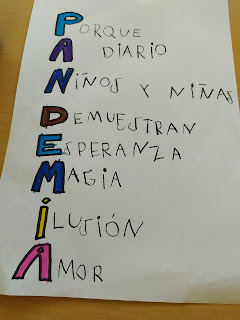 PORQUE
A DIARIO
NIÑOS Y NIÑAS
DEMUESTRAN
ESPERANZA
MAGIA
ILUSIÓN
AMOR